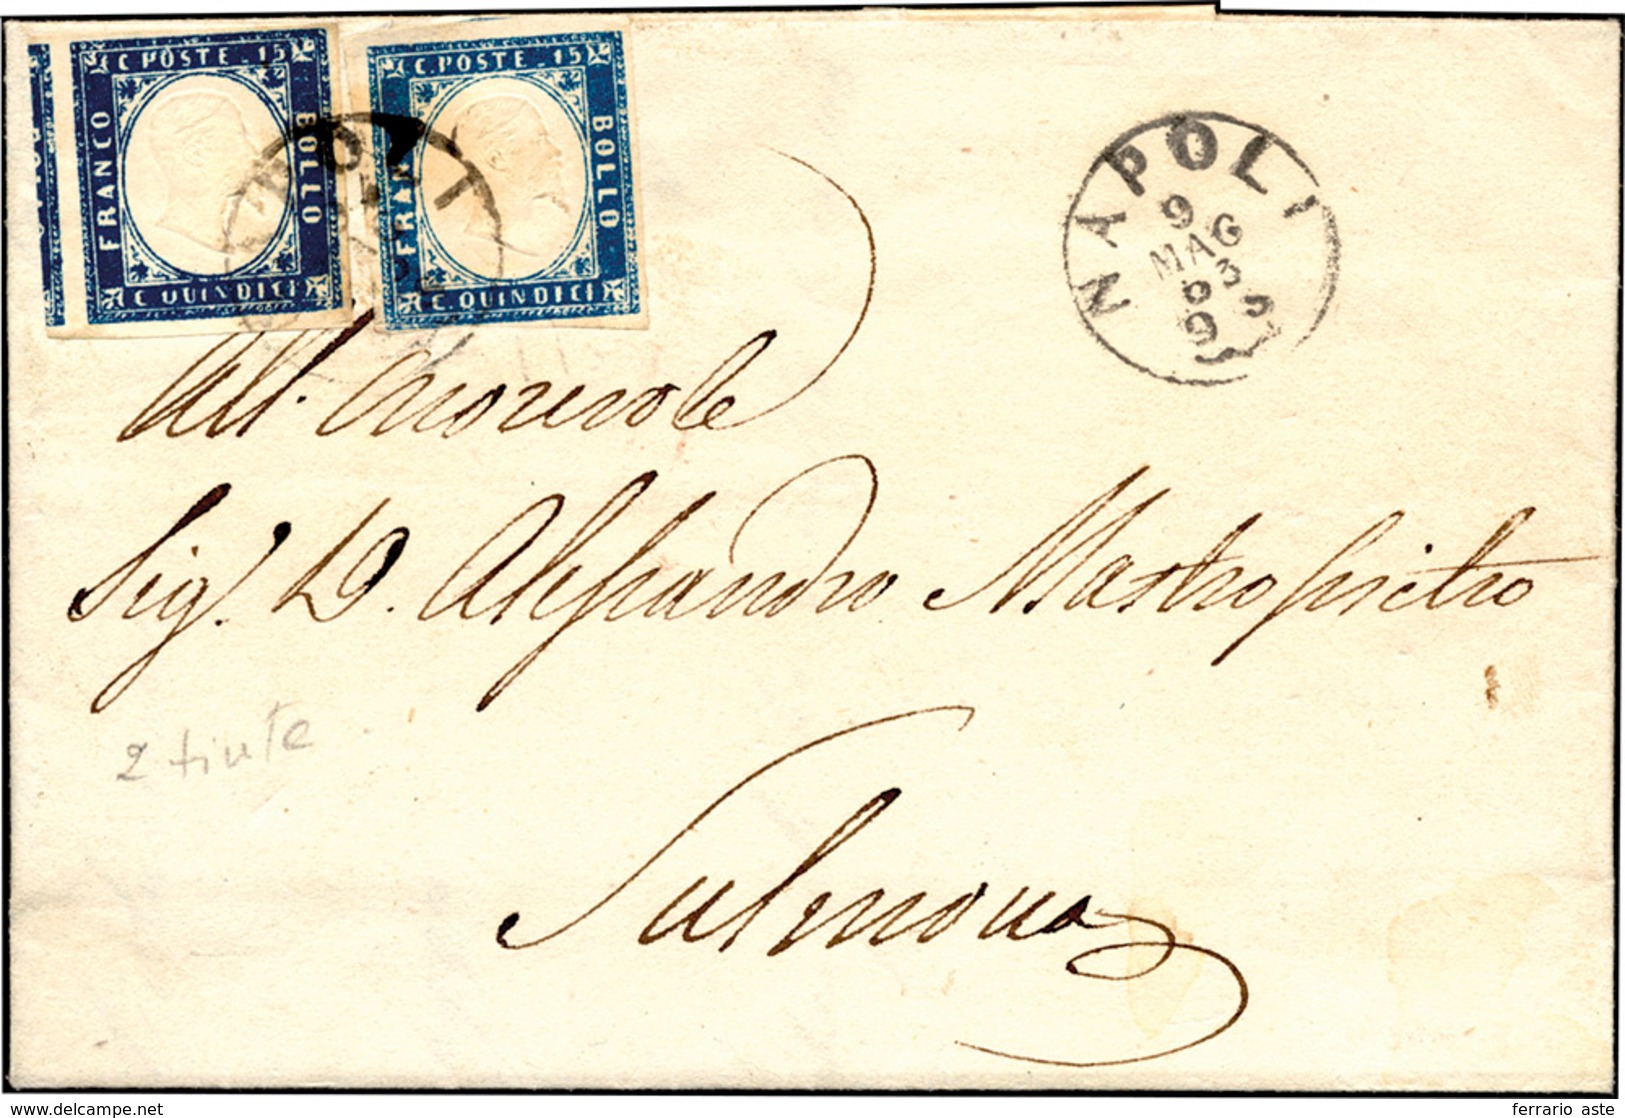 C. POSTE. 15
FRANCO
BOLLO
C. QUINDICI
C. POSTE. 15
FRAN
BOLLO
C. QUINDICI
NAPOLI
9
MAG
63
All. Onorevole
Sig.r D. Alessandro Mastropietro
2 tinte
Sulmona
www.delcampe.net
ferrario aste